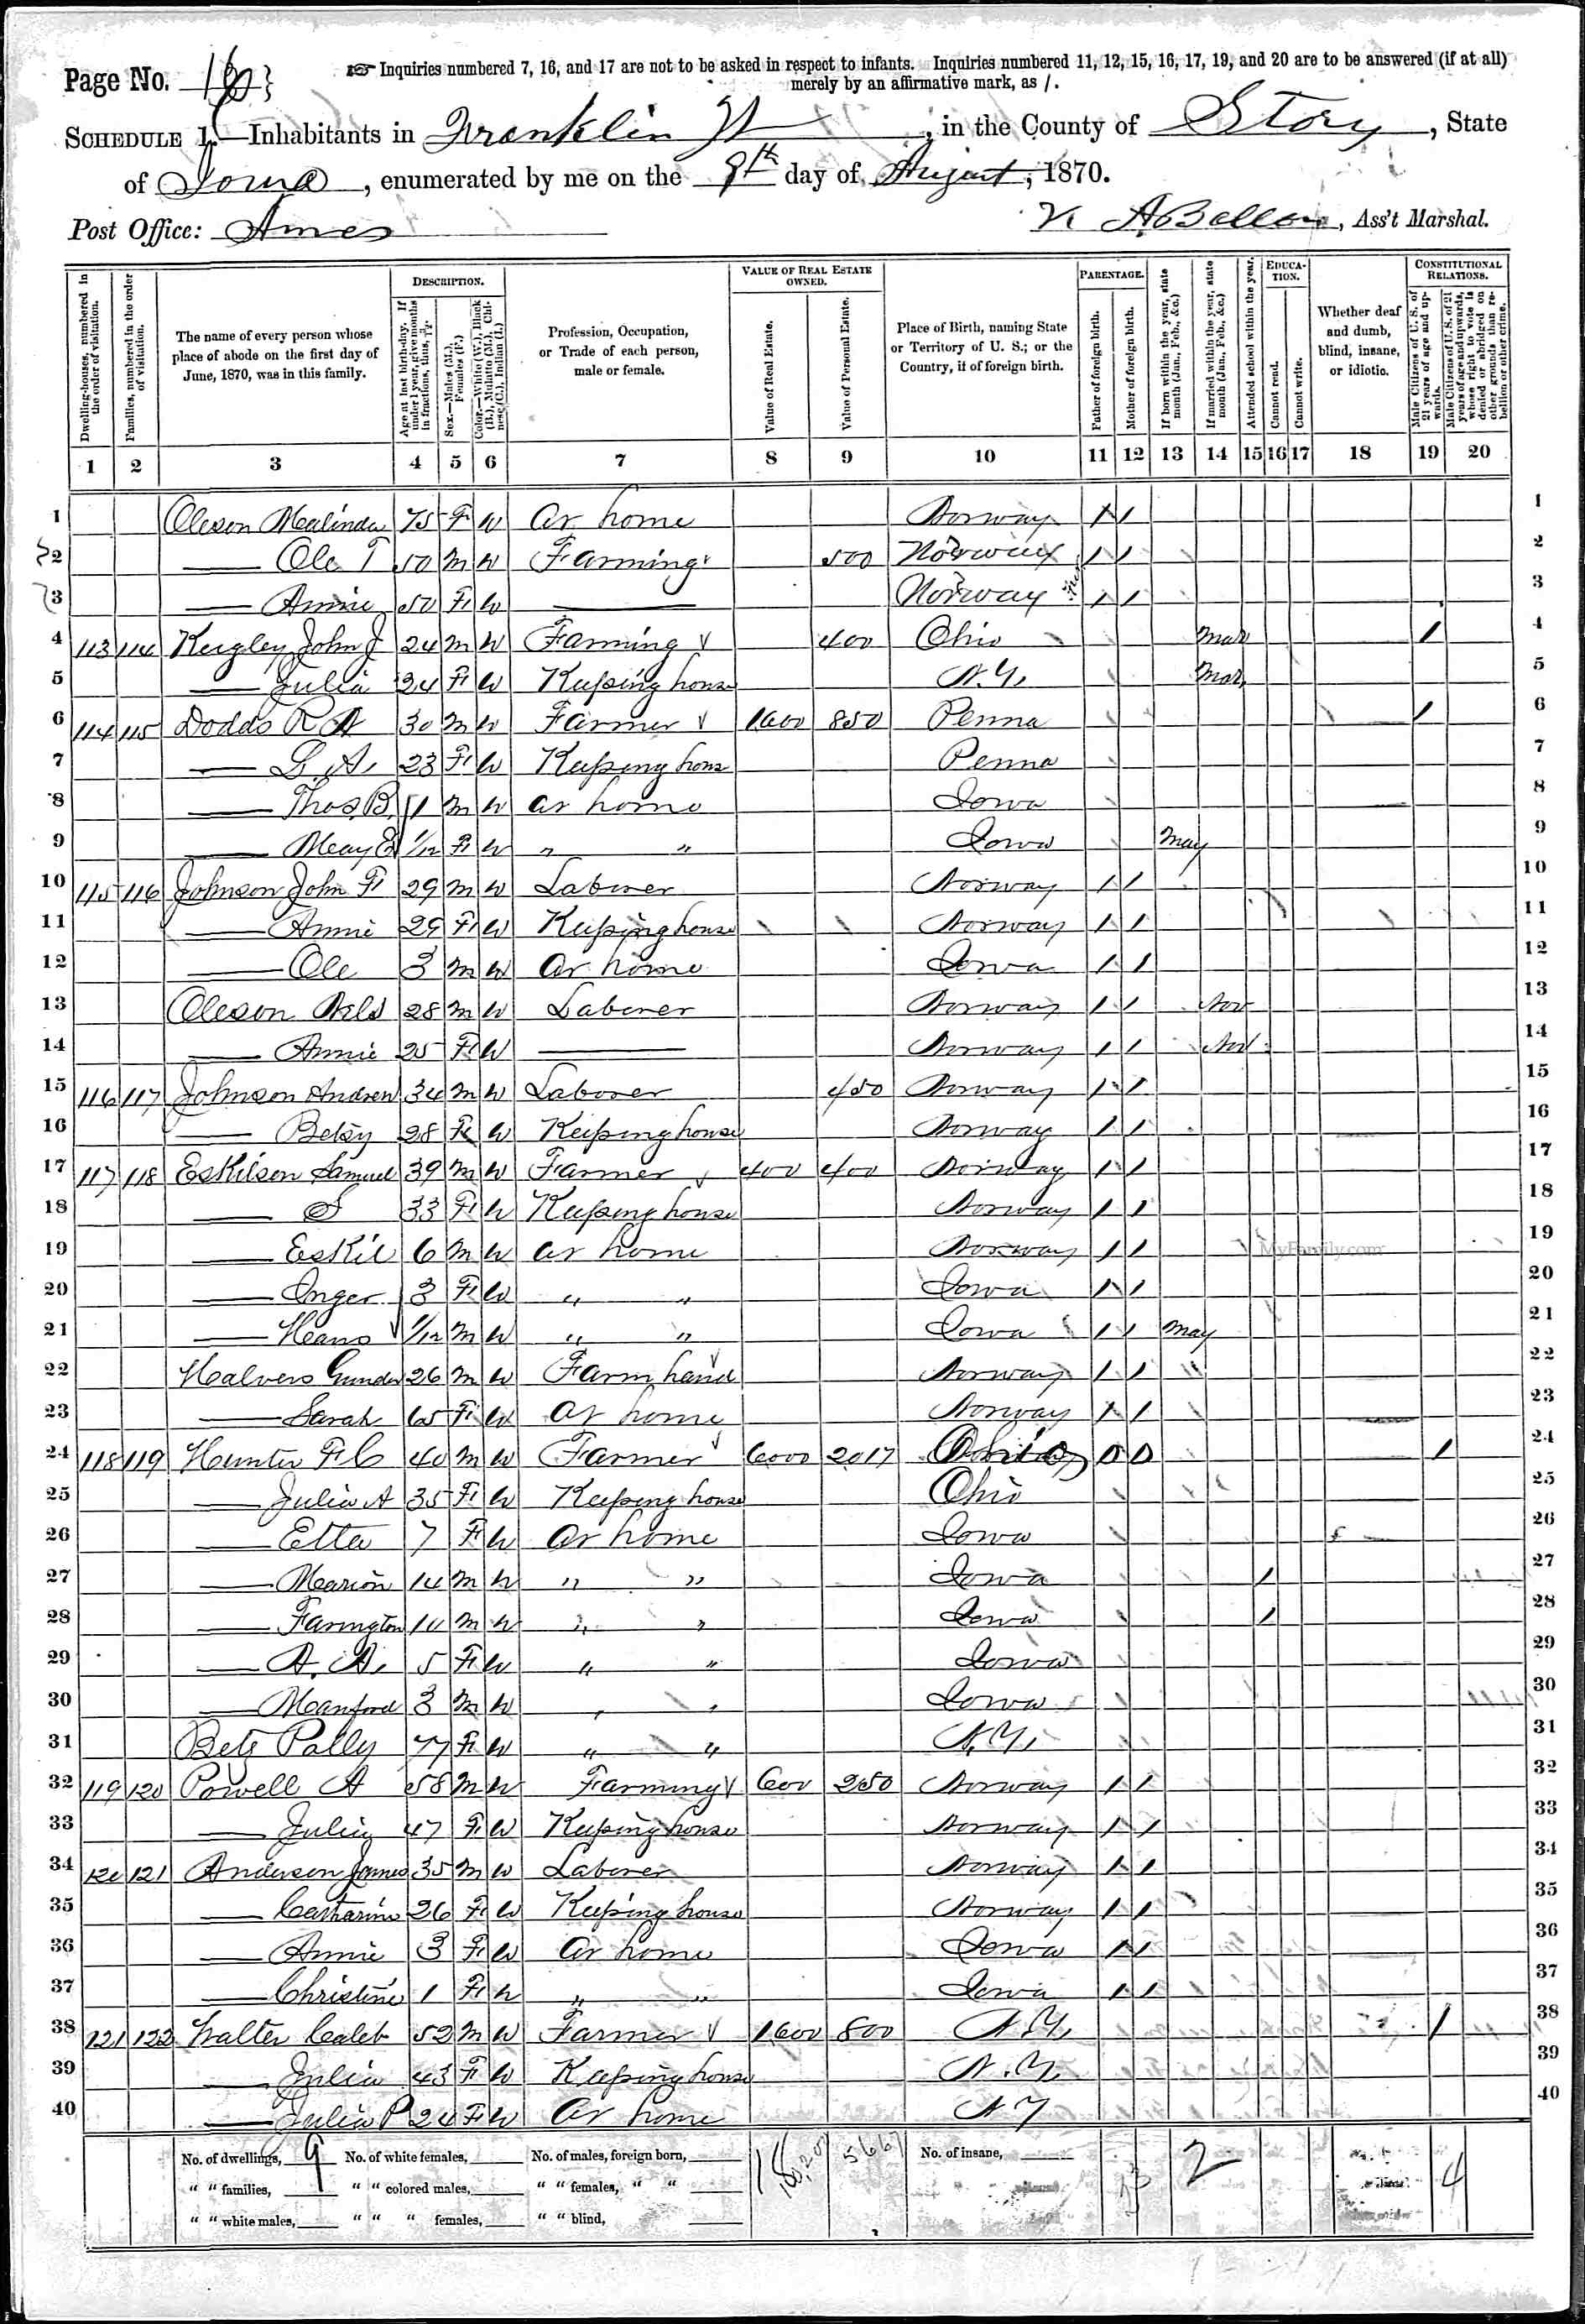 Page No. 16
☞ Inquiries numbered 7, 16, and 17 are not to be asked in respect to infants. Inquiries numbered 11, 12, 15, 16, 17, 19, and 20 are to be answered (if at all)
merely by an affirmative mark, as /.
SCHEDULE 1.—Inhabitants in Franklin, in the County of Story, State
of Iowa, enumerated by me on the 9th day of August, 1870.
Post Office: Ames
Ass't Marshal.
Dwelling-houses, numbered in the order of visitation.
Families, numbered in the order of visitation.
The name of every person whose place of abode on the first day of June, 1870, was in this family.
DESCRIPTION.
Age at last birth-day. If under 1 year, give months in fractions, thus, 3/12.
Sex.—Males (M.), Females (F.)
Color.—White (W.), Black (B.), Mulatto (M.), Chinese (C.), Indian (I.)
Profession, Occupation, or Trade of each person, male or female.
VALUE OF REAL ESTATE OWNED.
Value of Real Estate.
Value of Personal Estate.
Place of Birth, naming State or Territory of U. S.; or the Country, if of foreign birth.
PARENTAGE.
Father of foreign birth.
Mother of foreign birth.
If born within the year, state month (Jan., Feb., &c.)
If married within the year, state month (Jan., Feb., &c.)
Attended school within the year.
EDUCATION.
Cannot read.
Cannot write.
Whether deaf and dumb, blind, insane, or idiotic.
CONSTITUTIONAL RELATIONS.
Male Citizens of U. S. of 21 years of age and upwards.
Male Citizens of U. S. of 21 years of age and upwards, whose right to vote is denied or abridged on other grounds than rebellion or other crime.
1 2 3 4 5 6 7 8 9 10 11 12 13 14 15 16 17 18 19 20
1 Oleson Malinda 75 F W At home Norway / / 1
2 — Ole T 50 M W Farming 500 Norway / / 2
3 — Annie 50 F W — Norway / / 3
4 113 114 Keigley John J 24 M W Farming 400 Ohio Mar / 4
5 — Julia 24 F W Keeping house N.Y. Mar 5
6 114 115 Dodds R A 30 M W Farmer 1600 850 Penna / 6
7 — L. A. 23 F W Keeping house Penna 7
8 — Thos. B. 1 M W At home Iowa 8
9 — May E 1/12 F W " " Iowa May 9
10 115 116 Johnson John F 29 M W Laborer Norway / / 10
11 — Annie 29 F W Keeping house Norway / / 11
12 — Ole 3 M W At home Iowa / / 12
13 Oleson Nels 28 M W Laborer Norway / / Nov 13
14 — Annie 25 F W — Norway / / Nov 14
15 116 117 Johnson Andrew 34 M W Laborer 450 Norway / / 15
16 — Betsy 28 F W Keeping house Norway / / 16
17 117 118 Eskilson Samuel 39 M W Farmer 400 400 Norway / / 17
18 — S 33 F W Keeping house Norway / / 18
19 — Eskil 6 M W At home Norway / / 19
MyFamily.com
20 — Inger 3 F W " " Iowa / / 20
21 — Hans 1/12 M W " " Iowa / / May 21
22 Halvers Gunder 26 M W Farm hand Norway / / 22
23 — Sarah 65 F W At home Norway / / 23
24 118 119 Hunter F C 40 M W Farmer 6000 2017 Ohio 0 0 / 24
25 — Julia A 35 F W Keeping house Ohio 25
26 — Etta 7 F W At home Iowa 26
27 — Marion 14 M W " " Iowa / 27
28 — Farington 10 M W " " Iowa / 28
29 — A. A. 5 F W " " Iowa 29
30 — Manford 3 M W " " Iowa 30
31 Polly 77 F W " " N.Y. 31
32 119 120 Powell A 58 M W Farming 600 250 Norway / / 32
33 — Julia 47 F W Keeping house Norway / / 33
34 120 121 Anderson James 35 M W Laborer Norway / / 34
35 — Catharine 26 F W Keeping house Norway / / 35
36 — Annie 3 F W At home Iowa / / 36
37 — Christine 1 F W " " Iowa / / 37
38 121 122 Walter Caleb 52 M W Farmer 1600 800 N.Y. / 38
39 — Julia 43 F W Keeping house N.Y. 39
40 — Julia P 24 F W At home N Y 40
No. of dwellings, 9 No. of white females, No. of males, foreign born, 5667 No. of insane, 2 4
" " families, 9 " " colored males, " " females, " "
" " white males, " " " females, " " blind,